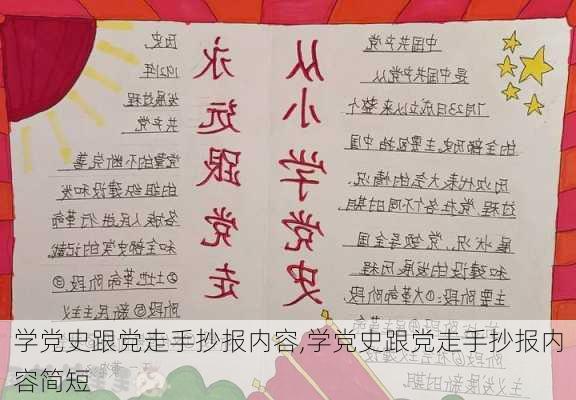 中国共产党
是中国共产党从
7月23日成立以来整个
的全部历史主要包括中国
历次代表大会的情况、
过程,党在各个不同的时期
况、党领导全国
和建设的发展历程
主要阶段:①大革命阶段
主义发展新时期
从小学党史
永远跟党走
历史
1921年
发展过程
共产党
党章的不断完善
的组织建设和发
各族人民进行革命
和全部史实的记载
②土地革命阶段③
阶段 新民主主义
学党史跟党走手抄报内容,学党史跟党走手抄报内
容简短